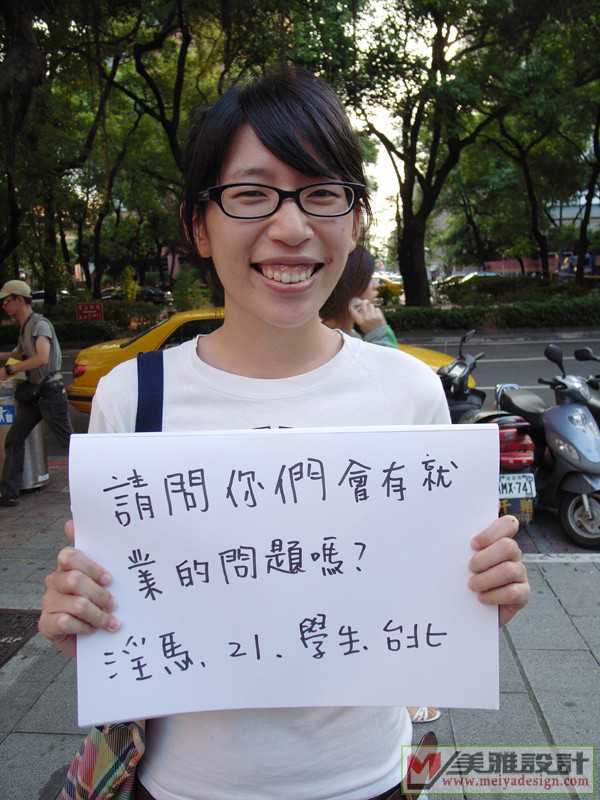 請問你們會有就
業的問題嗎?
淫馬、21、學生、台北
MX-74
美雅設計
www.meiyadesign.com